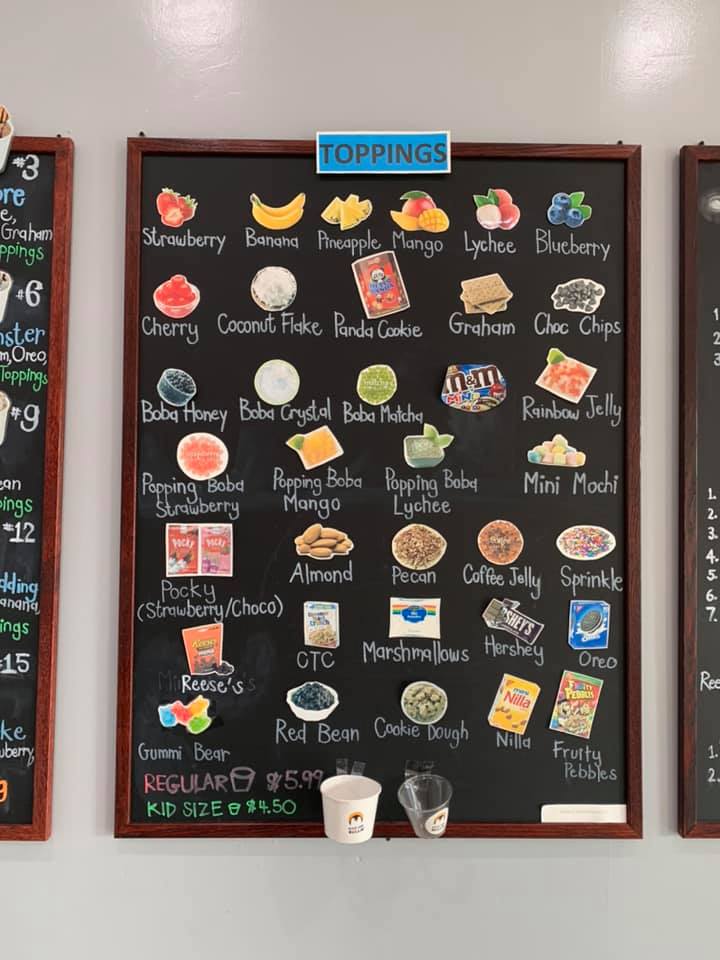 TOPPINGS
Strawberry Banana Pineapple Mango Lychee Blueberry
Cherry Coconut Flake Panda Cookie Graham Choc Chips
matcha
m&m
MINIS
Boba Honey Boba Crystal Boba Matcha Rainbow Jelly
Popping Boba Strawberry
Popping Boba Mango
Popping Boba Lychee
Mini Mochi
POCKY POCKY
Pocky
(Strawberry/Choco)
Almond Pecan Coffee Jelly Sprinkle
Reese's
Reese's
CTC
Marshmallows
HERSHEY'S
Hershey
OREO
Oreo
Gummi Bear
Red Bean
Cookie Dough
mini
Nilla
Nilla
Fruity
PEBBLES
Fruity
Pebbles
REGULAR $5.99
KID SIZE $4.50
#3
ore
e,
Graham
ppings
#6
nster
m, Oreo,
Toppings
#9
ean
pings
#12
dding
anana,
ings
#15
ke
uberry
9
1.
2.
3.
4.
5.
6.
7.
Ree
1.
2.